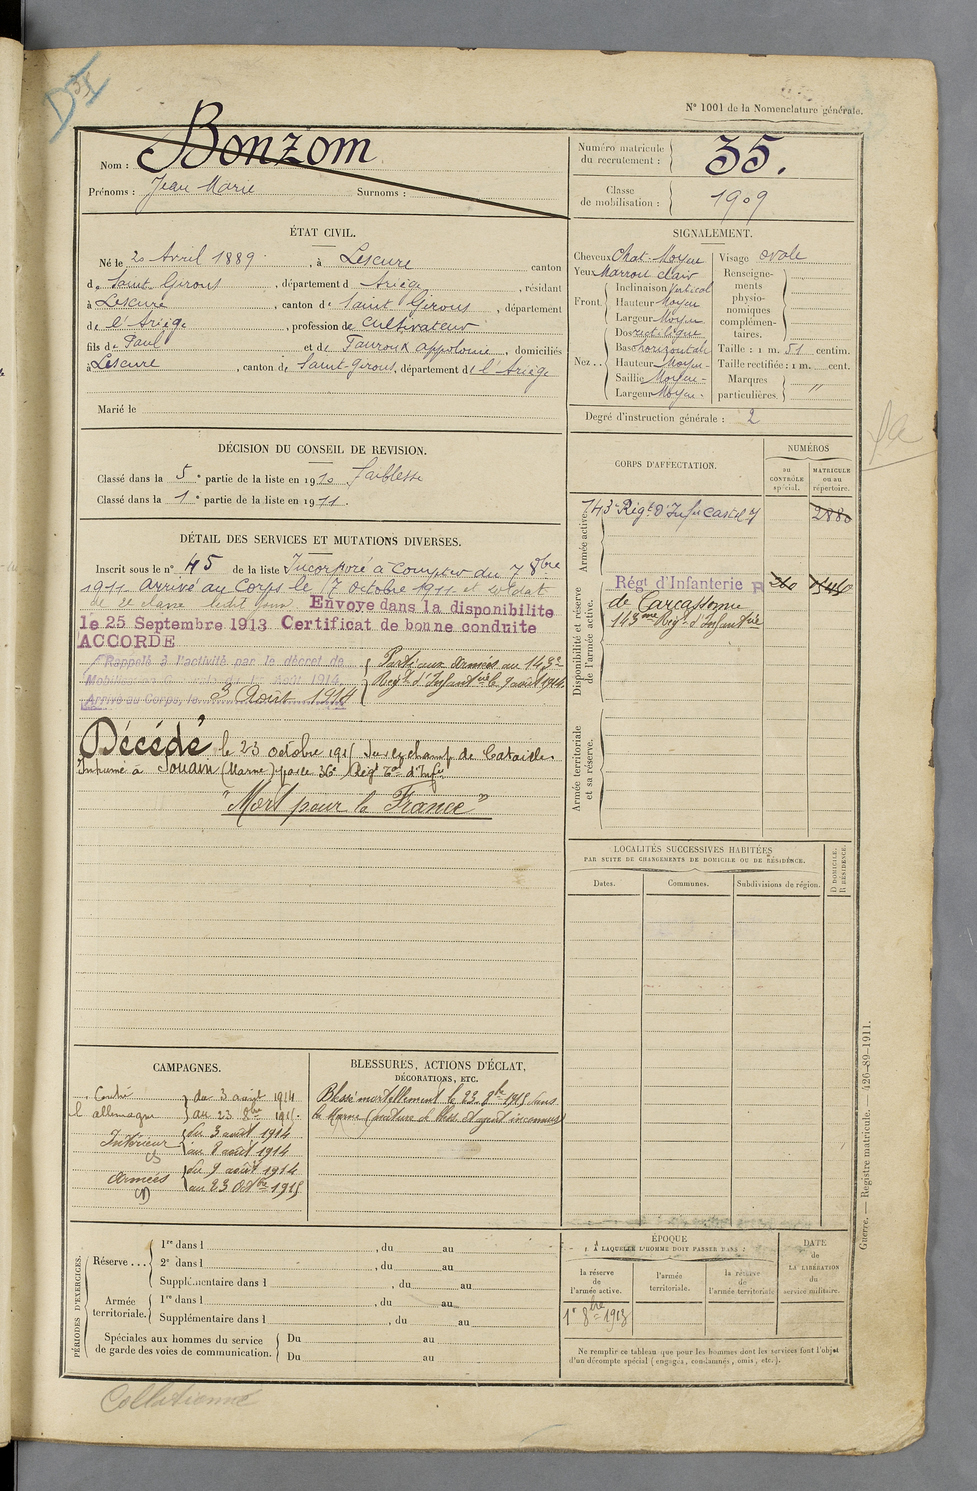 N° 1001 de la Nomenclature générale.
Nom : Bonzom
Prénoms : Jean Marie Surnoms :
Numéro matricule du recrutement : 35.
Classe de mobilisation : 1909
ÉTAT CIVIL.
Né le 20 Avril 1889, à Lescure canton
de Saint-Girons, département d Ariège, résidant
à Lescure, canton de Saint Girons, département
de l'Ariège, profession de cultivateur
fils de Paul et de Tauroux appolonie, domiciliés
à Lescure, canton de Saint-Girons, département d l'Ariège
Marié le
SIGNALEMENT.
Cheveux Chat. Moyen
Yeux Marron clair
Front. Inclinaison Vertical
Hauteur Moyen
Largeur Moyen
Nez... Dos rectiligne
Base horizontale
Hauteur Moyen
Saillie Moyen
Largeur Moyen
Visage ovale
Renseignements physionomiques complémentaires.
Taille : 1 m. 51 centim.
Taille rectifiée : 1 m. cent.
Marques particulières. "
Degré d'instruction générale : 2
DÉCISION DU CONSEIL DE REVISION.
Classé dans la 5e partie de la liste en 1910 faiblesse
Classé dans la 1e partie de la liste en 1911.
DÉTAIL DES SERVICES ET MUTATIONS DIVERSES.
Inscrit sous le n° 45 de la liste Incorporé à compter du 7 8bre
1911. Arrivé au Corps le 7 octobre 1911 et soldat
de 2e classe ledit jour. Envoyé dans la disponibilite
le 25 Septembre 1913 Certificat de bonne conduite
ACCORDE
Rappelé à l'activité par le décret de
Mobilisation Générale du 1er Août 1914.
Arrivé au Corps, le 3 Août 1914
Parti aux armées au 143e
Régt d'Infanterie le 9 août 1914.
Décédé le 23 octobre 1915 sur le champ de bataille.
Inhumé à Souain (Marne) par le 36e Régt Tal d'Infie
"Mort pour la France"
CORPS D'AFFECTATION.
NUMÉROS
au CONTRÔLE spécial.
MATRICULE ou au répertoire.
Armée active.
143e Régt d'Infie
2880
Disponibilité et réserve de l'armée active.
Régt d'Infanterie R
de Carcassonne
143me Régt d'Infanterie
Armée territoriale et sa réserve.
LOCALITÉS SUCCESSIVES HABITÉES
PAR SUITE DE CHANGEMENTS DE DOMICILE OU DE RÉSIDENCE.
Dates.
Communes.
Subdivisions de région.
D DOMICILE. R RÉSIDENCE.
CAMPAGNES.
Contre l'allemagne du 3 août 1914
au 23 8bre 1915.
Intérieur du 3 août 1914
au 8 août 1914
Armées du 9 août 1914
au 23 Octbre 1915
BLESSURES, ACTIONS D'ÉCLAT,
DÉCORATIONS, ETC.
Blessé mortellement le 23 8bre 1915 dans
la Marne (nature de bless. et agent inconnus)
PÉRIODES D'EXERCICES.
Réserve...
1re dans l , du au
2e dans l , du au
Supplémentaire dans l , du au
Armée territoriale.
1re dans l , du au
Supplémentaire dans l , du au
Spéciales aux hommes du service de garde des voies de communication.
Du au
Du au
ÉPOQUE
À LAQUELLE L'HOMME DOIT PASSER DANS :
la réserve de l'armée active.
l'armée territoriale.
la réserve de l'armée territoriale
DATE de LA LIBÉRATION du service militaire.
1er 8bre 1913
Ne remplir ce tableau que pour les hommes dont les services font l'objet
d'un décompte spécial (engagés, condamnés, omis, etc.).
Guerre. — Registre matricule. — 426-89-1911.
Collationné